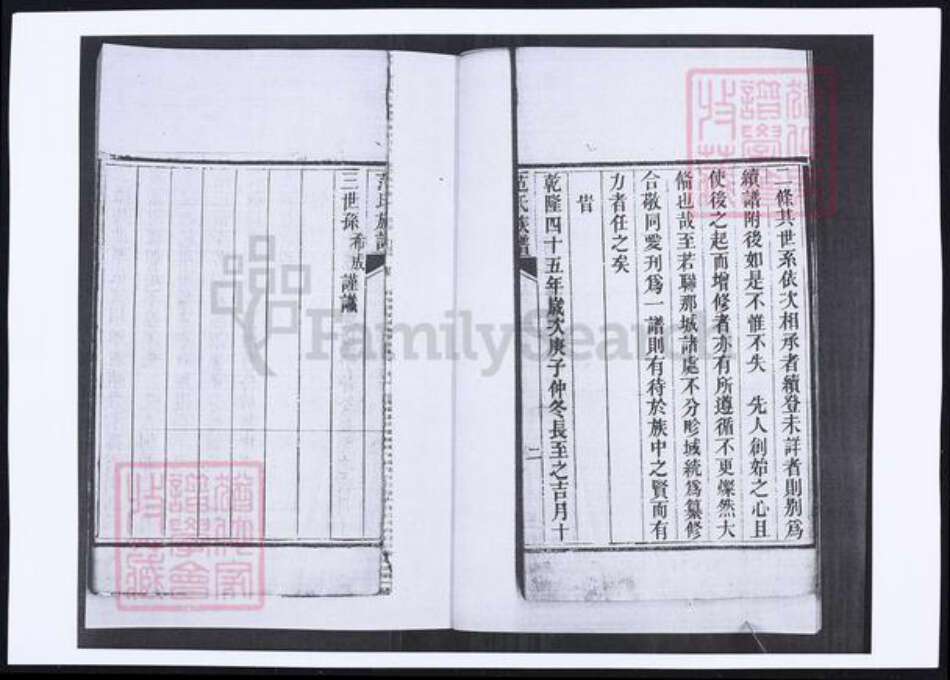 二條其世系依次相承者續登未詳者則別爲
續譜附後如是不惟不失 先人創始之心且
使後之起而增修者亦有所遵循不更燦然大
備也哉至若聯那城諸處不分畛域統爲纂修
合敬同愛刊爲一譜則有待於族中之賢而有
力者任之矣
旹
乾隆四十五年歲次庚子仲冬長至之吉月十
范氏族譜
二
范氏族譜
三世孫 希 謹識
FamilySearch